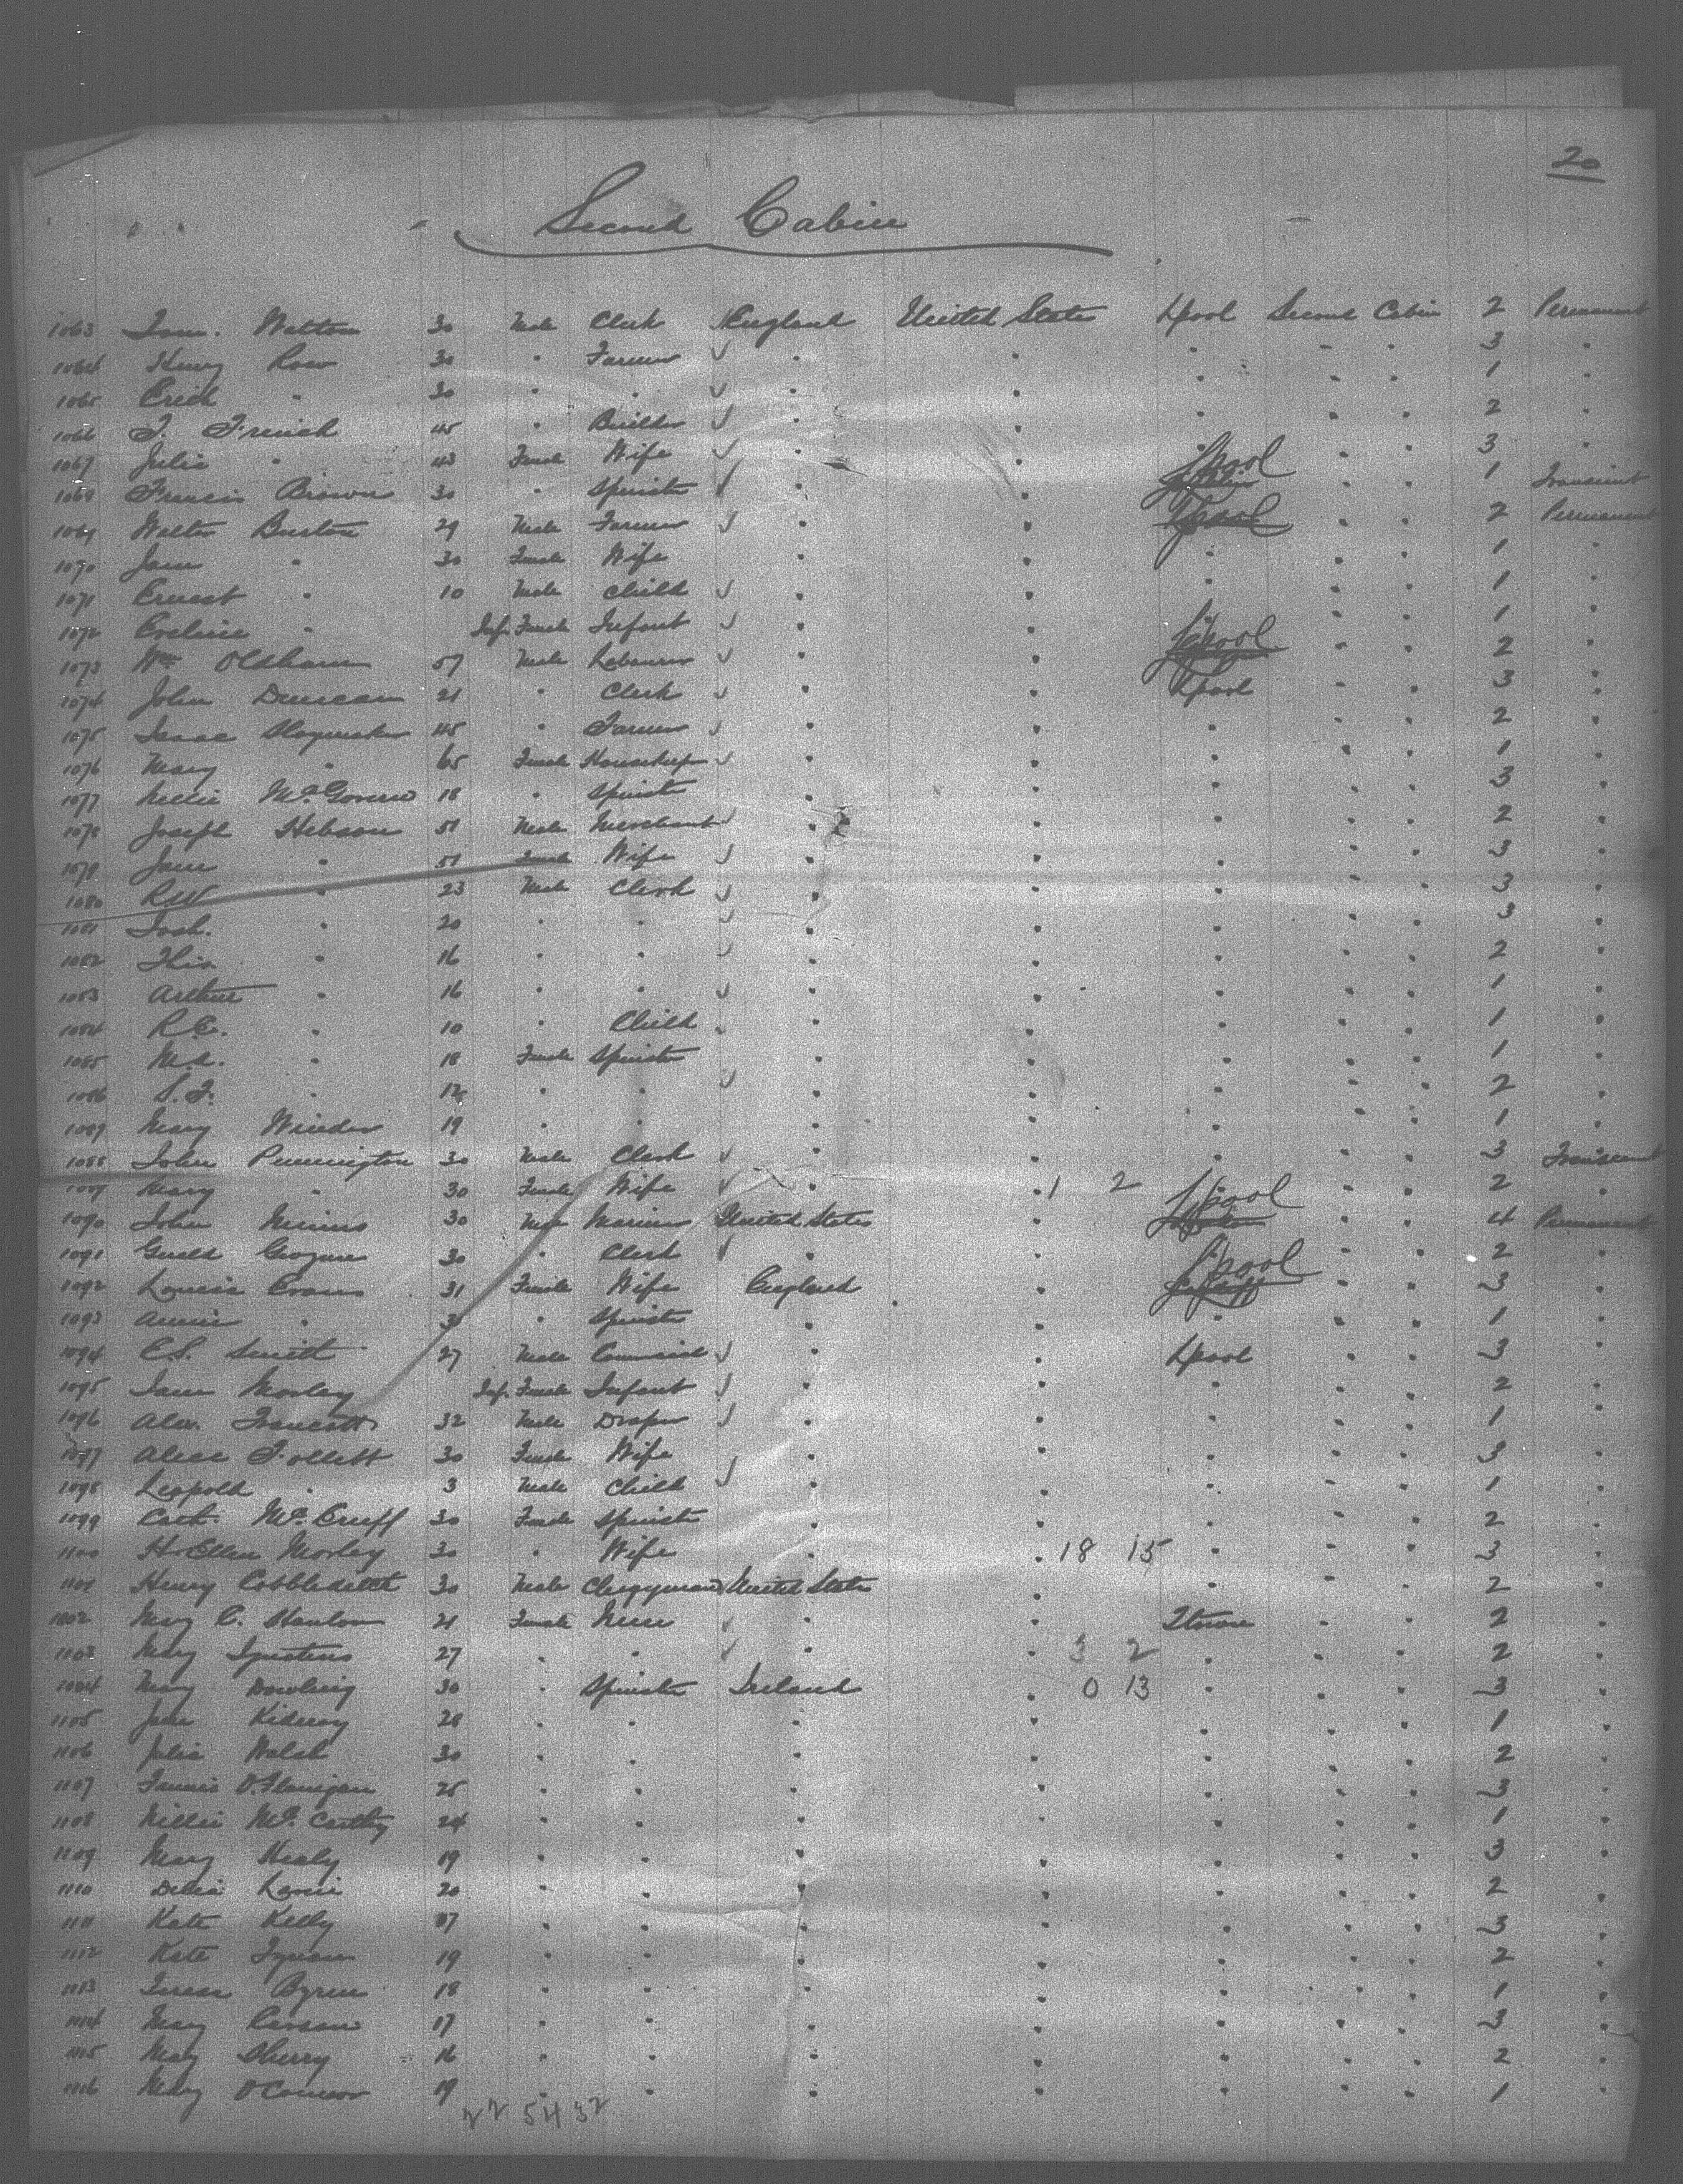 20
Second Cabin
1063 Walton 30 Male Clerk England United States Lpool Second Cabin 2 Permanent
1064 Henry Row 30 " Farmer " " " " " 3 "
1065 " 30 " " " " " " " 1 "
1066 French 45 " Builder " " " " " 2 "
1067 Julia " 43 Female Wife " " " " " 3 "
1068 Francis Brown 30 " Spinster " " Lpool " " 1 Transient
1069 Walter Buxton 29 Male Farmer " " " " 2 Permanent
1070 Jane " 30 Female Wife " " " " " 1 "
1071 Ernest " 10 Male Child " " " " " 1 "
1072 " Inf. Female Infant " " " " " 1 "
1073 Wm Oldham 57 Male Labourer " " Lpool " " 2 "
1074 John Duncan 21 " Clerk " " Lpool " " 3 "
1075 Isaac 45 " Farmer " " " " " 2 "
1076 Mary " 65 Female Housekeep " " " " " 1 "
1077 Nellie McGovern 18 " Spinster " " " " " 3 "
1078 Joseph Hebson 51 Male Merchant " " " " " 2 "
1079 Jane " 51 Female Wife " " " " " 3 "
1080 RW " 23 Male Clerk " " " " " 3 "
1081 " 20 " " " " " " " 3 "
1082 " 16 " " " " " " " 2 "
1083 Arthur " 16 " " " " " " " 1 "
1084 R.E. " 10 " Child " " " " " 1 "
1085 M.A. " 18 Female Spinster " " " " " 1 "
1086 " 12 " " " " " " " 2 "
1087 Mary Winder 19 " " " " " " " 1 "
1088 John Pennington 30 Male Clerk " " " " " 3 Transient
1089 Mary " 30 Female Wife " " 1 2 " " 2 "
1090 John 30 Male Mariner United States " Lpool " " 4 Permanent
1091 30 " Clerk " " " " 2 "
1092 Louisa Evans 31 Female Wife England " Lpool " " 3 "
1093 Annie " " Spinster " " " " " 1 "
1094 E.S. Smith 27 Male " " Lpool " " 3 "
1095 Jane Morley Inf. Female Infant " " " " " 2 "
1096 Alex. 32 Male Draper " " " " " 1 "
1097 Alice Follett 30 Female Wife " " " " " 3 "
1098 Leopold " 3 Male Child " " " " " 1 "
1099 Cath. 30 Female Spinster " " " " " 2 "
1100 Ellen Morley 30 " Wife " " 18 15 " " " 3 "
1101 Henry 30 Male Clergyman United States " " " " 2 "
1102 Mary C. Hanlon 21 Female " " " " 2 "
1103 Mary Ignatius 27 " " " " 3 2 " " " 2 "
1104 Mary Dowling 30 " Spinster Ireland " 0 13 " " " 3 "
1105 28 " " " " " " " 1 "
1106 Julia Walsh 30 " " " " " " " 2 "
1107 O'Flanigan 25 " " " " " " " 3 "
1108 Nellie McCarthy 24 " " " " " " " 1 "
1109 Mary Healy 19 " " " " " " " 3 "
1110 Delia 20 " " " " " " " 2 "
1111 Kate Kelly " " " " " " " 3 "
1112 Kate 19 " " " " " " " 2 "
1113 Teresa Byrne 18 " " " " " " " 1 "
1114 Mary 17 " " " " " " " 3 "
1115 Mary Sherry 16 " " " " " " " 2 "
1116 Mary O'Connor 19 " " " " " " " 1 "
22 54 32